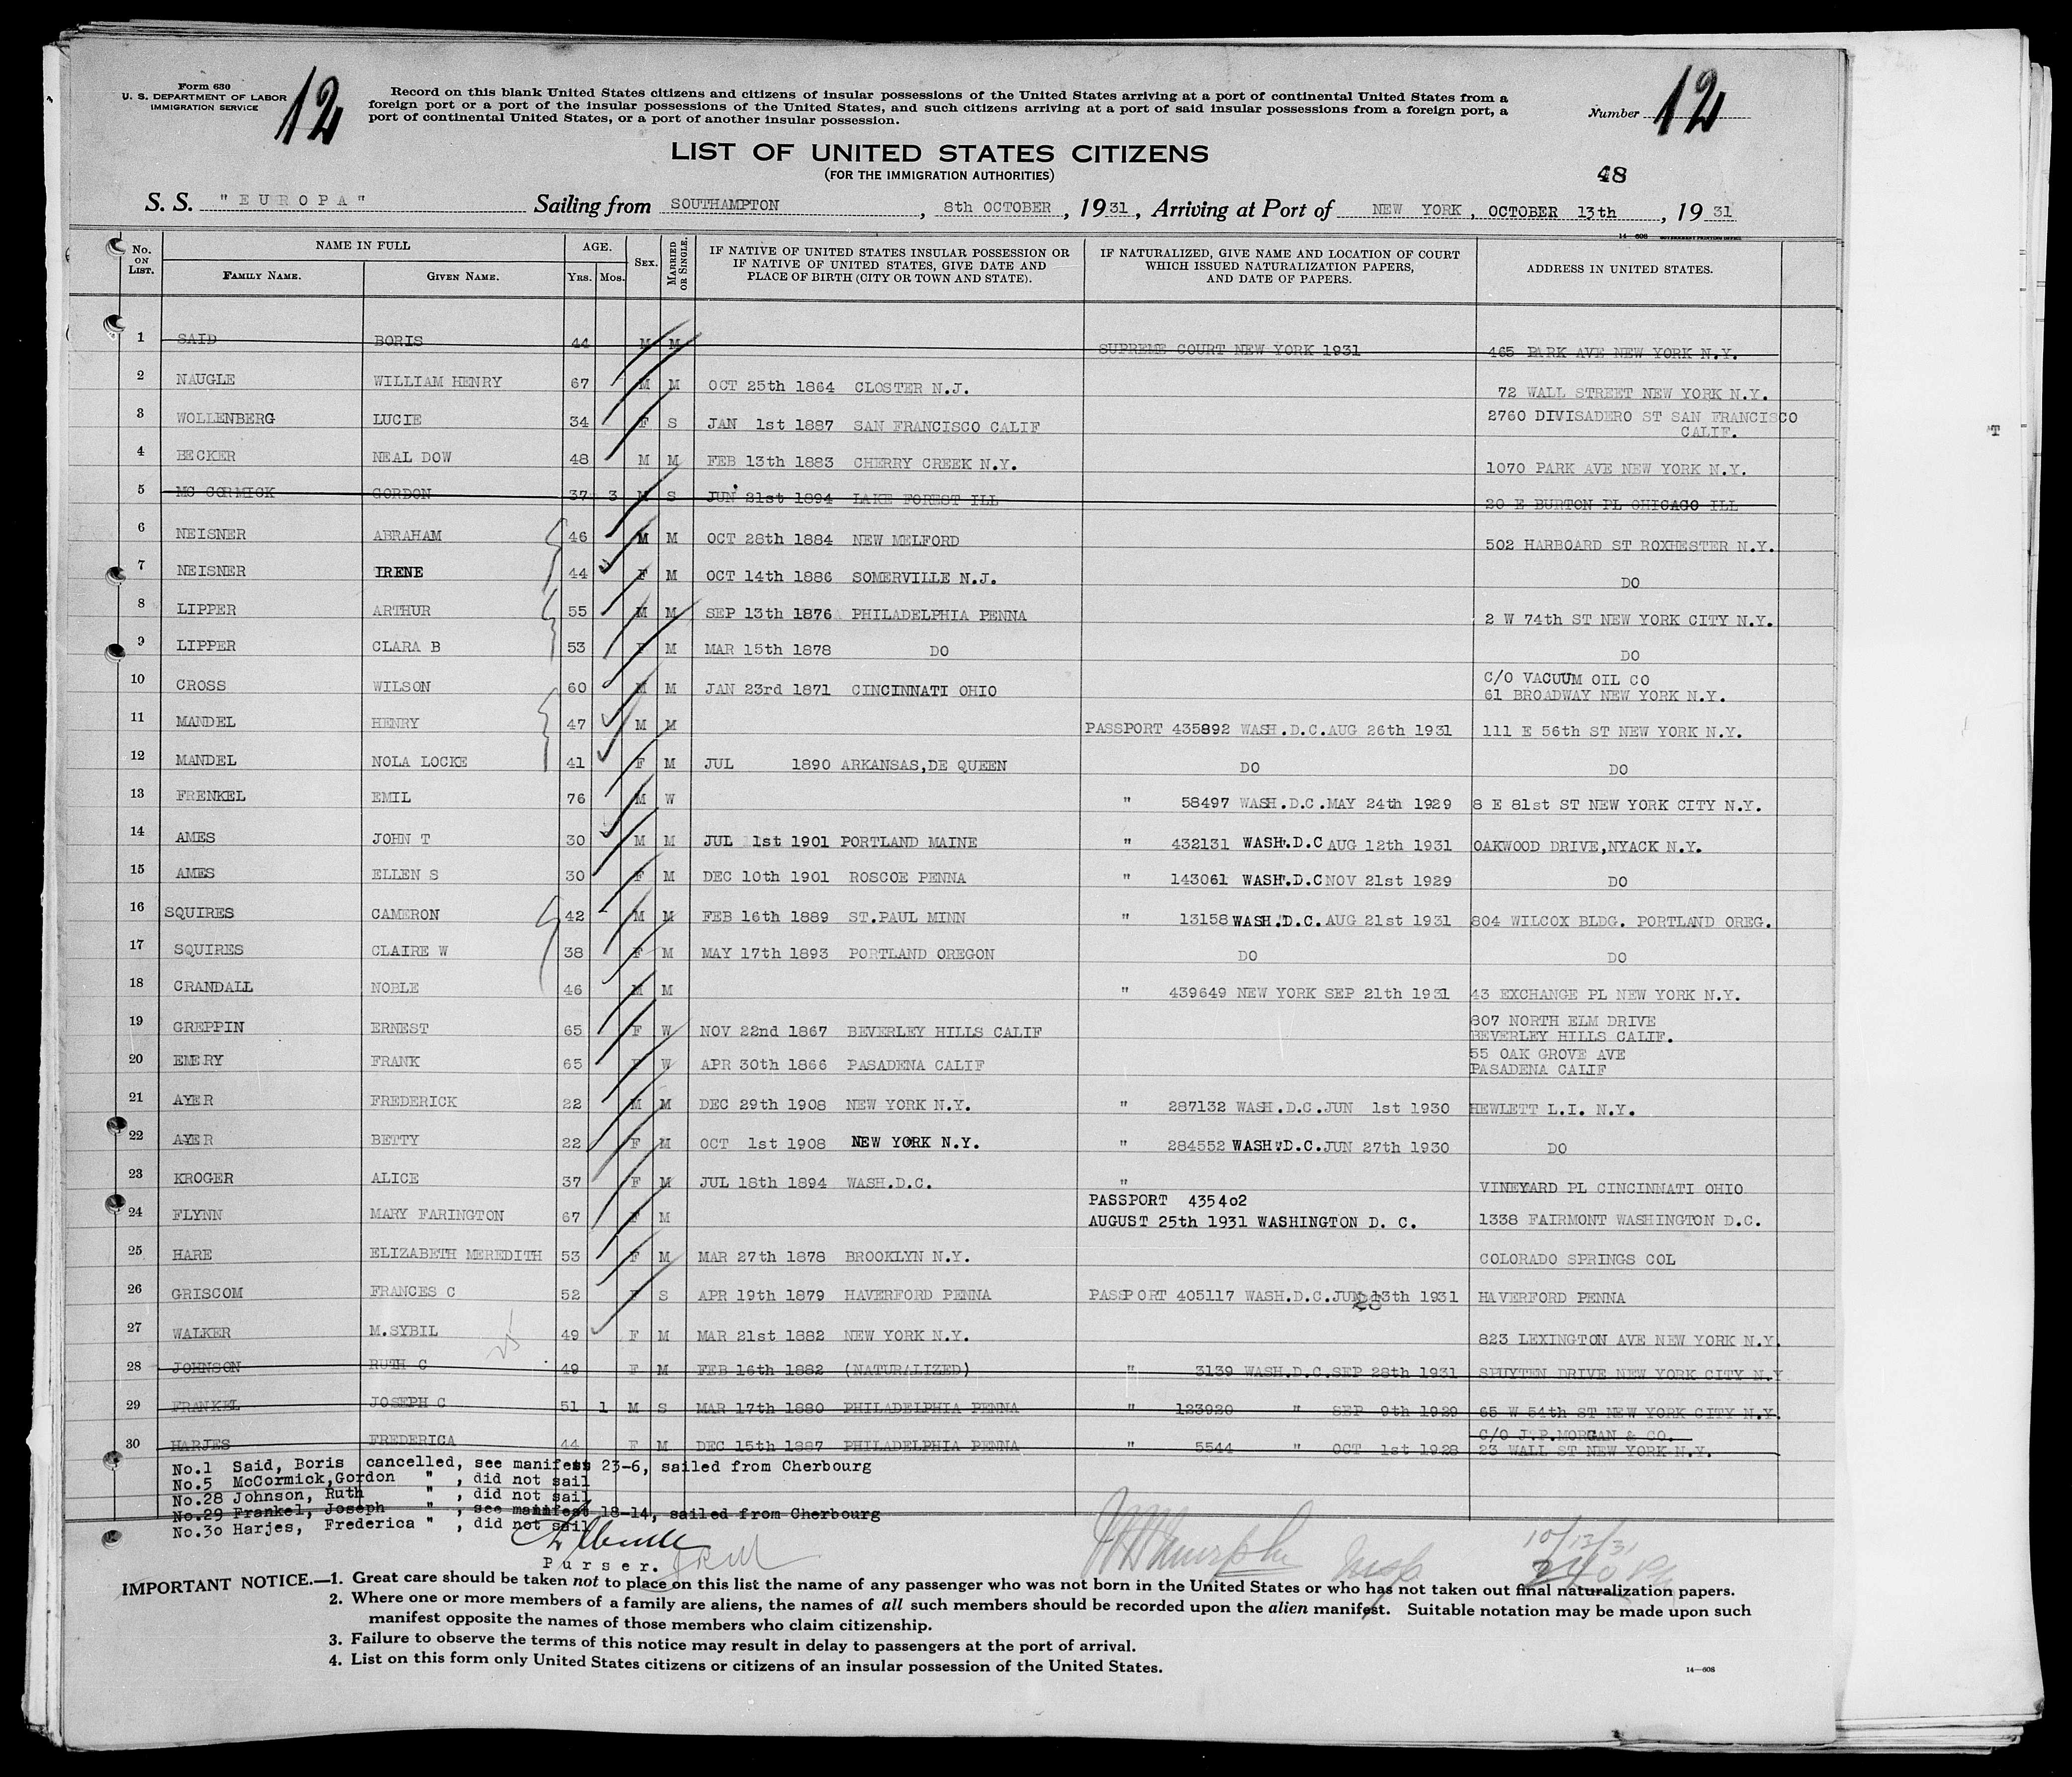 Form 630
U. S. DEPARTMENT OF LABOR
IMMIGRATION SERVICE
12
Record on this blank United States citizens and citizens of insular possessions of the United States arriving at a port of continental United States from a
foreign port or a port of the insular possessions of the United States, and such citizens arriving at a port of said insular possessions from a foreign port, a
port of continental United States, or a port of another insular possession.
Number 12
LIST OF UNITED STATES CITIZENS
(FOR THE IMMIGRATION AUTHORITIES)
48
S. S. "EUROPA" Sailing from SOUTHAMPTON, 8th OCTOBER, 1931, Arriving at Port of NEW YORK, OCTOBER 13th, 1931
14—608 GOVERNMENT PRINTING OFFICE
No. ON LIST. NAME IN FULL FAMILY NAME. GIVEN NAME. AGE. Yrs. Mos. SEX. MARRIED OR SINGLE. IF NATIVE OF UNITED STATES INSULAR POSSESSION OR IF NATIVE OF UNITED STATES, GIVE DATE AND PLACE OF BIRTH (CITY OR TOWN AND STATE). IF NATURALIZED, GIVE NAME AND LOCATION OF COURT WHICH ISSUED NATURALIZATION PAPERS, AND DATE OF PAPERS. ADDRESS IN UNITED STATES.
1 SAID BORIS 44 M M SUPREME COURT NEW YORK 1931 465 PARK AVE NEW YORK N.Y.
2 NAUGLE WILLIAM HENRY 67 M M OCT 25th 1864 CLOSTER N.J. 72 WALL STREET NEW YORK N.Y.
3 WOLLENBERG LUCIE 34 F S JAN 1st 1887 SAN FRANCISCO CALIF 2760 DIVISADERO ST SAN FRANCISCO
CALIF.
4 BECKER NEAL DOW 48 M M FEB 13th 1883 CHERRY CREEK N.Y. 1070 PARK AVE NEW YORK N.Y.
5 MC CORMICK GORDON 37 3 M S JUN 21st 1894 LAKE FOREST ILL 20 E BURTON PL CHICAGO ILL
6 NEISNER ABRAHAM 46 M M OCT 28th 1884 NEW MELFORD 502 HARBOARD ST ROXHESTER N.Y.
7 NEISNER IRENE 44 F M OCT 14th 1886 SOMERVILLE N.J. DO
8 LIPPER ARTHUR 55 M M SEP 13th 1876 PHILADELPHIA PENNA 2 W 74th ST NEW YORK CITY N.Y.
9 LIPPER CLARA B 53 F M MAR 15th 1878 DO DO
10 CROSS WILSON 60 M M JAN 23rd 1871 CINCINNATI OHIO C/O VACUUM OIL CO
61 BROADWAY NEW YORK N.Y.
11 MANDEL HENRY 47 M M PASSPORT 435892 WASH.D.C.AUG 26th 1931 111 E 56th ST NEW YORK N.Y.
12 MANDEL NOLA LOCKE 41 F M JUL 1890 ARKANSAS,DE QUEEN DO DO
13 FRENKEL EMIL 76 M W " 58497 WASH.D.C.MAY 24th 1929 8 E 81st ST NEW YORK CITY N.Y.
14 AMES JOHN T 30 M M JUL 1st 1901 PORTLAND MAINE " 432131 WASH.D.C AUG 12th 1931 OAKWOOD DRIVE,NYACK N.Y.
15 AMES ELLEN S 30 F M DEC 10th 1901 ROSCOE PENNA " 143061 WASH.D.C NOV 21st 1929 DO
16 SQUIRES CAMERON 42 M M FEB 16th 1889 ST.PAUL MINN " 13158 WASH.D.C. AUG 21st 1931 804 WILCOX BLDG. PORTLAND OREG.
17 SQUIRES CLAIRE W 38 F M MAY 17th 1893 PORTLAND OREGON DO DO
18 CRANDALL NOBLE 46 M M " 439649 NEW YORK SEP 21th 1931 43 EXCHANGE PL NEW YORK N.Y.
19 GREPPIN ERNEST 65 F W NOV 22nd 1867 BEVERLEY HILLS CALIF 807 NORTH ELM DRIVE
BEVERLEY HILLS CALIF.
20 EMERY FRANK 65 F W APR 30th 1866 PASADENA CALIF 55 OAK GROVE AVE
PASADENA CALIF
21 AYER FREDERICK 22 M M DEC 29th 1908 NEW YORK N.Y. " 287132 WASH.D.C.JUN 1st 1930 HEWLETT L.I. N.Y.
22 AYER BETTY 22 F M OCT 1st 1908 NEW YORK N.Y. " 284552 WASH.D.C.JUN 27th 1930 DO
23 KROGER ALICE 37 F M JUL 18th 1894 WASH.D.C. " VINEYARD PL CINCINNATI OHIO
PASSPORT 435402
24 FLYNN MARY FARINGTON 67 F M AUGUST 25th 1931 WASHINGTON D. C. 1338 FAIRMONT WASHINGTON D.C.
25 HARE ELIZABETH MEREDITH 53 F M MAR 27th 1878 BROOKLYN N.Y. COLORADO SPRINGS COL
26 GRISCOM FRANCES C 52 F S APR 19th 1879 HAVERFORD PENNA PASSPORT 405117 WASH.D.C.JUN 13th 1931 HAVERFORD PENNA
27 WALKER M.SYBIL 49 F M MAR 21st 1882 NEW YORK N.Y. 823 LEXINGTON AVE NEW YORK N.Y.
25
28 JOHNSON RUTH C 49 F M FEB 16th 1882 (NATURALIZED) " 3139 WASH.D.C.SEP 28th 1931 SPUYTEN DRIVE NEW YORK CITY N.Y
29 FRANKEL JOSEPH C 51 1 M S MAR 17th 1880 PHILADELPHIA PENNA " 123920 " SEP 9th 1929 65 W 54th ST NEW YORK CITY N.Y.
30 HARJES FREDERICA 44 F M DEC 15th 1887 PHILADELPHIA PENNA " 5544 " OCT 1st 1928 C/O J.P.MORGAN & CO.
23 WALL ST NEW YORK N.Y.
No.1 Said, Boris cancelled, see manifest 23-6, sailed from Cherbourg
No.5 McCormick,Gordon " , did not sail
No.28 Johnson, Ruth " , did not sail
No.29 Frankel, Joseph " , see manifest 18-14, sailed from Cherbourg
No.30 Harjes, Frederica " , did not sail
Purser.
10/13/31
IMPORTANT NOTICE.—1. Great care should be taken not to place on this list the name of any passenger who was not born in the United States or who has not taken out final naturalization papers.
2. Where one or more members of a family are aliens, the names of all such members should be recorded upon the alien manifest. Suitable notation may be made upon such
manifest opposite the names of those members who claim citizenship.
3. Failure to observe the terms of this notice may result in delay to passengers at the port of arrival.
4. List on this form only United States citizens or citizens of an insular possession of the United States.
14—608